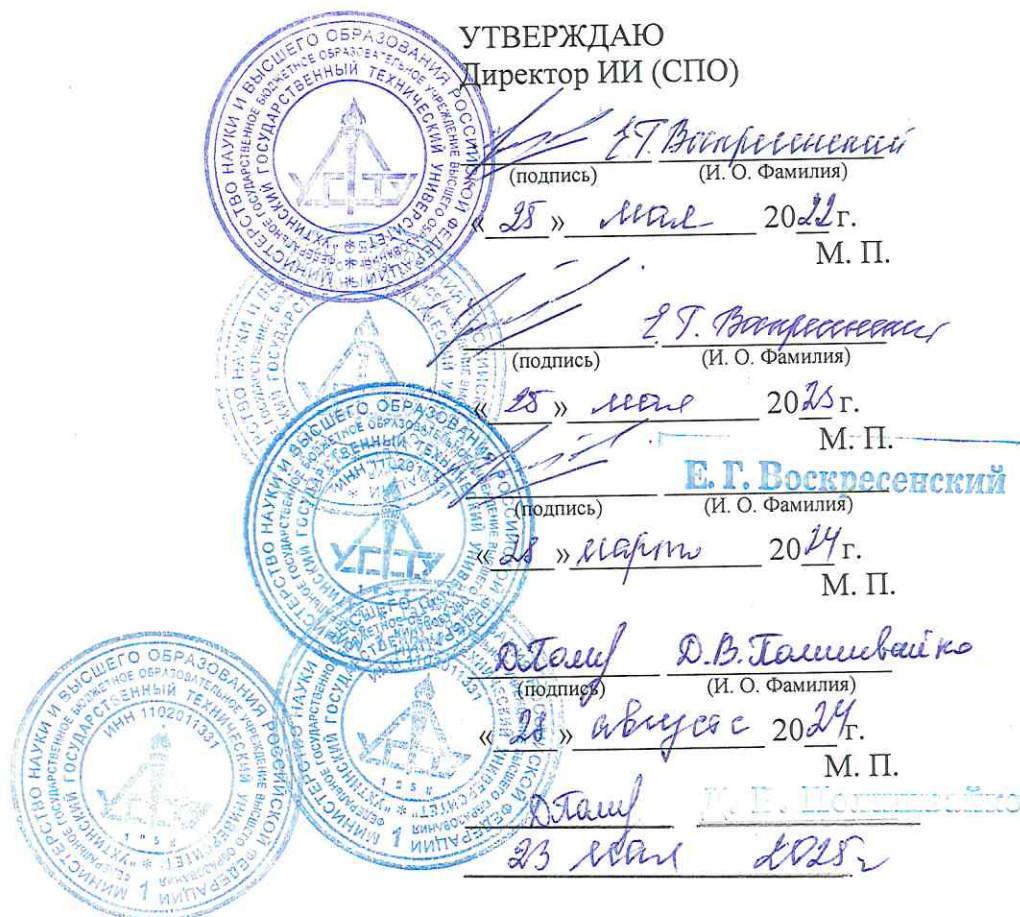 УТВЕРЖДАЮ
Директор ИИ (СПО)
Е.Г. Воскресенский
(подпись) (И. О. Фамилия)
« 25 » мая 2022 г.
М. П.
Е.Г. Воскресенский
(подпись) (И. О. Фамилия)
« 25 » мая 2023 г.
М. П.
Е. Г. Воскресенский
(подпись) (И. О. Фамилия)
« 28 » марта 2024 г.
М. П.
Д.В. Полишвайко
(подпись) (И. О. Фамилия)
« 28 » августа 2024 г.
М. П.
Д. В. Полишвайко
23 мая 2025 г
МИНИСТЕРСТВО НАУКИ И ВЫСШЕГО ОБРАЗОВАНИЯ РОССИЙСКОЙ ФЕДЕРАЦИИ
ФЕДЕРАЛЬНОЕ ГОСУДАРСТВЕННОЕ БЮДЖЕТНОЕ ОБРАЗОВАТЕЛЬНОЕ УЧРЕЖДЕНИЕ ВЫСШЕГО ОБРАЗОВАНИЯ
"УХТИНСКИЙ ГОСУДАРСТВЕННЫЙ ТЕХНИЧЕСКИЙ УНИВЕРСИТЕТ"
ИНН 1102011331
УГТУ
1958
1